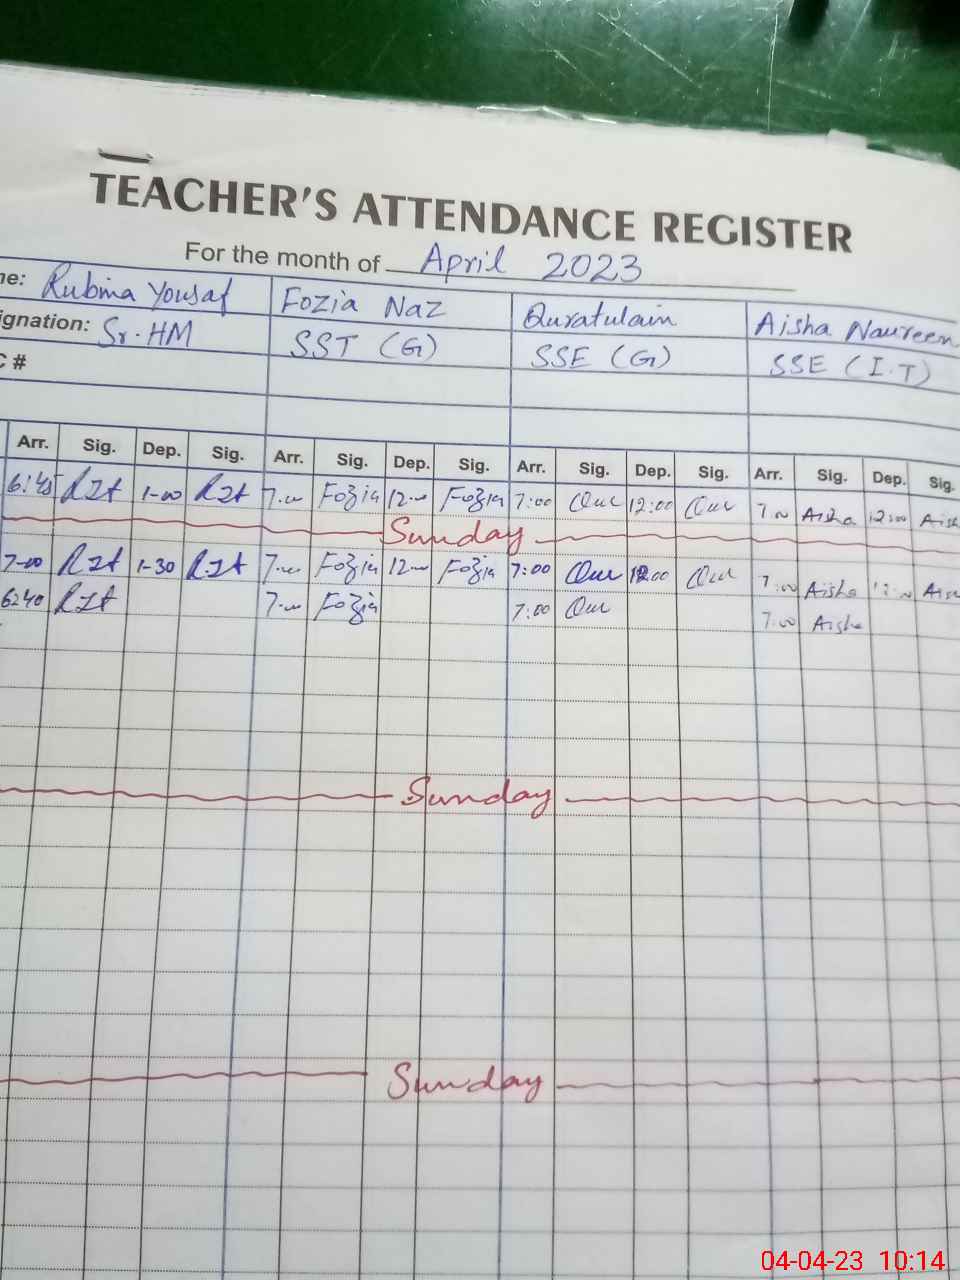 TEACHER'S ATTENDANCE REGISTER
For the month of April 2023
ne: Rubina Yousaf Fozia Naz Quratulain Aisha Naureen
ignation: Sr.HM SST (G) SSE (G) SSE (I.T)
C #
Arr. Sig. Dep. Sig. Arr. Sig. Dep. Sig. Arr. Sig. Dep. Sig. Arr. Sig. Dep. Sig.
6:45 1-00 7.00 Fozia 12.00 Fozia 7:00 Qur 12:00 Qur 7.00 Aisha 12:00 Aish
Sunday
7-00 1-30 7.00 Fozia 12.00 Fozia 7:00 Qur 12:00 Qur 7:00 Aisha Aish
7.00 Fozia 7:00 Qur 7:00 Aisha
Sunday
Sunday
04-04-23 10:14